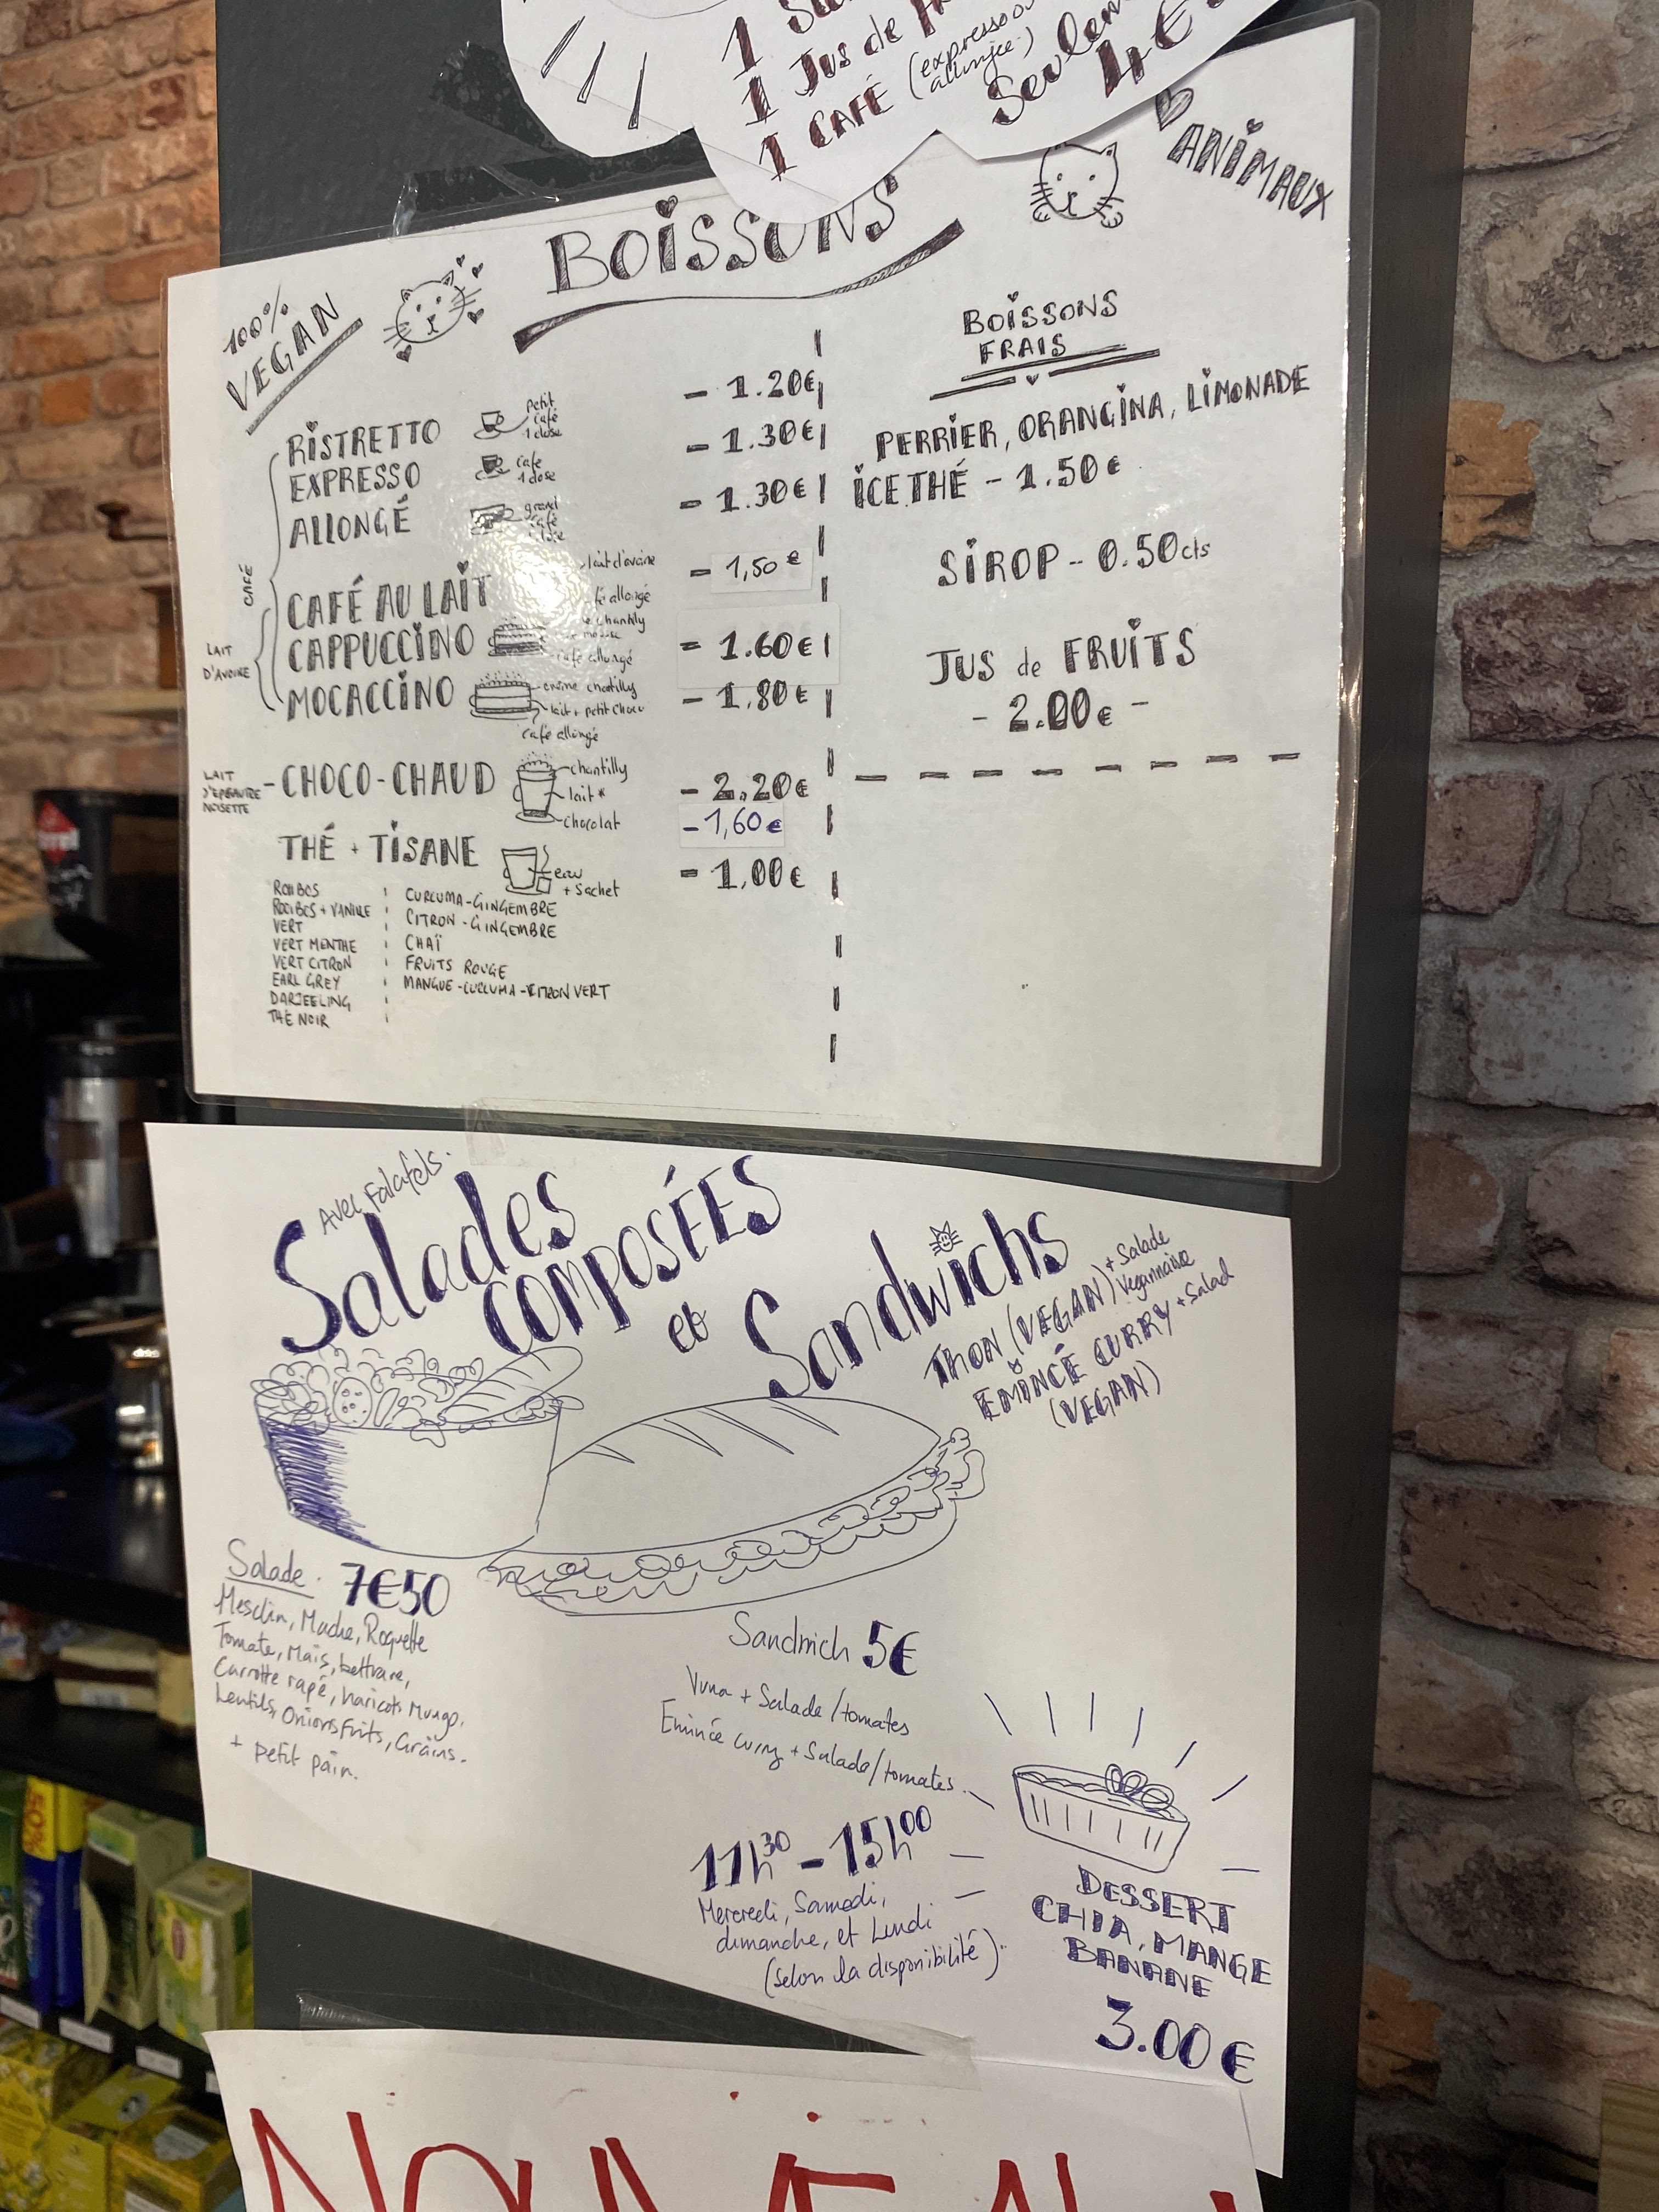 1 Jus de
1 CAFÉ (expresso ou
allongé.)
4€
ANIMAUX
BOISSONS
100%
VEGAN
RISTRETTO petit café 1 dose - 1.20€
EXPRESSO café 1 dose - 1.30€
ALLONGÉ grand café - 1.30€
CAFÉ
CAFÉ AU LAIT lait d'avoine - 1,50€
CAPPUCCINO chantilly café allongé - 1.60€
MOCACCINO crème chantilly - 1.80€
lait + petit choco
café allongé
LAIT
D'AVOINE
-CHOCO-CHAUD - 2.20€
chantilly
lait*
chocolat
LAIT
NOISETTE
-1,60€
THÉ + TISANE - 1,00€
eau
+ sachet
ROIBOS
ROOIBOS + VANILLE
VERT
VERT MENTHE
VERT CITRON
EARL GREY
DARJEELING
THÉ NOIR
CURCUMA-GINGEMBRE
CITRON-GINGEMBRE
CHAÏ
FRUITS ROUGE
MANGUE-CURCUMA-CITRON VERT
BOISSONS
FRAIS
PERRIER, ORANGINA, LIMONADE
ICE THÉ - 1.50€
SIROP - 0.50cts
JUS de FRUITS
- 2.00€ -
Avec Falafels.
Salades
COMPOSÉES
et Sandwichs
THON (VEGAN) + Salade
Vegannaise
EMINCÉ CURRY + Salad
(VEGAN)
Salade. 7€50
Mesclun, Mache, Roquette
Tomate, Maïs, bettrave,
Carrotte rapé, haricots Mungo,
Lentils, Onions frits, Grains.
+ petit pain.
Sandwich 5€
Vuna + Salade/tomates
Emincé curry + Salade/tomates.
11h30 - 15h00
Mercredi, Samedi,
dimanche, et Lundi
(selon la disponibilité).
DESSERT
CHIA, MANGE
BANANE
3.00€
50%